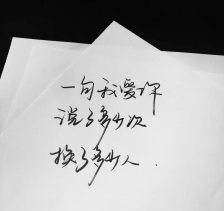 一句我爱你
说了多少次
换了多少人.